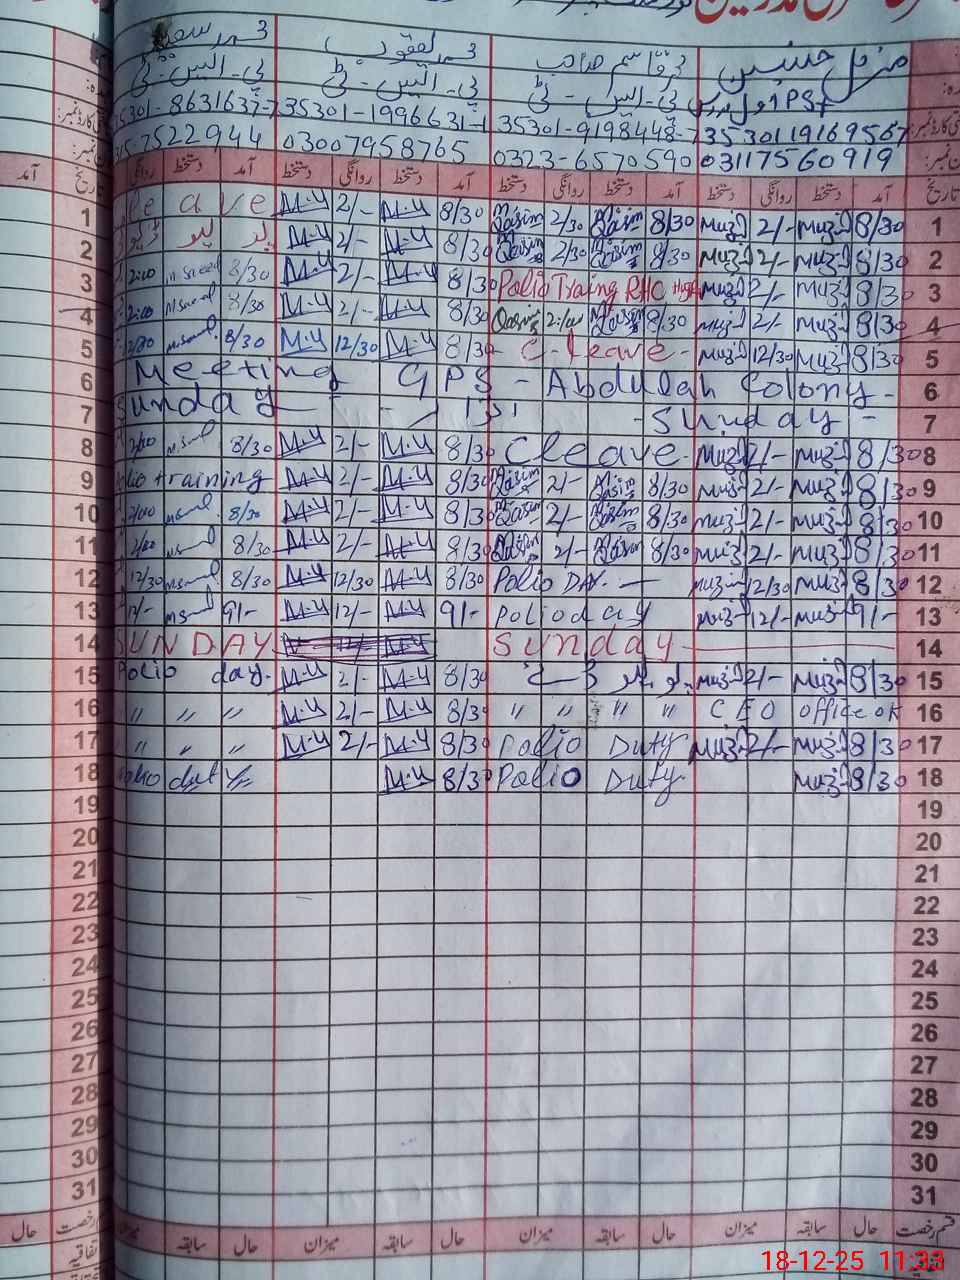 محمد سعید محمد یعقوب محمد قاسم صاحب مزمل حسنین
پی۔ایس۔ٹی پی۔ایس۔ٹی پی۔ایس۔ٹی PST
35301-8631637-7 35301-1996631-1 35301-9198448-7 353011916956
7522944 03007958765 0323-6570590 03117560919
آمد تاریخ روانگی دستخط آمد دستخط روانگی دستخط آمد دستخط روانگی دستخط آمد دستخط روانگی دستخط آمد تاریخ
1 leave M.Y 2/- M.Y 8/30 Qasim 2/30 Qasim 8/30 Muz 2/- Muz 8/30 1
2 M.Y 2/- M.Y 8/30 Qasim 2/30 Qasim 8/30 Muz 2/- Muz 8/30 2
3 2:00 m.saeed 8/30 M.Y 2/- M.Y 8/30 Polio Traing RHC Muz 2/- Muz 8/30 3
4 2:00 8/30 M.Y 2/- M.Y 8/30 Qasim 2:/00 Qasim 8/30 Muz 2/- Muz 8/30 4
5 8/30 M.Y 12/30 M.Y 8/30 C-leave- Muz 12/30 Muz 8/30 5
6 Meeting GPS - Abdullah Colony - 6
7 Sunday اتوار - Sunday - 7
8 8/30 M.Y 2/- M.Y 8/30 C leave Muz 2/- Muz 8/30 8
9 Polio training M.Y 2/- M.Y 8/30 Qasim 2/- Qasim 8/30 Muz 2/- Muz 8/30 9
10 8/30 M.Y 2/- M.Y 8/30 Qasim 2/- Qasim 8/30 Muz 2/- Muz 8/30 10
11 8/30 M.Y 2/- M.Y 8/30 Qasim 2/- Qasim 8/30 Muz 2/- Muz 8/30 11
12 12/30 8/30 M.Y 12/30 M.Y 8/30 Polio DAY. Muz 12/30 Muz 8/30 12
13 12/- 9/- M.Y 12/- M.Y 9/- Polio day Muz 12/- Muz 9/- 13
14 SUNDAY Sunday 14
15 Polio day. M.Y 2/- M.Y 8/30 Muz 2/- Muz 8/30 15
16 〃 〃 〃 M.Y 2/- M.Y 8/30 〃 〃 〃 〃 CEO office ok 16
17 〃 〃 〃 M.Y 2/- M.Y 8/30 Polio Duty Muz 2/- Muz 8/30 17
18 Polio duty M.Y 8/30 Polio Duty Muz 8/30 18
19 19
20 20
21 21
22 22
23 23
24 24
25 25
26 26
27 27
28 28
29 29
30 30
31 31
حال قسم رخصت میزان سابقہ حال میزان سابقہ حال میزان سابقہ حال میزان سابقہ حال قسم رخصت
اتفاقیہ
18-12-25 11:33